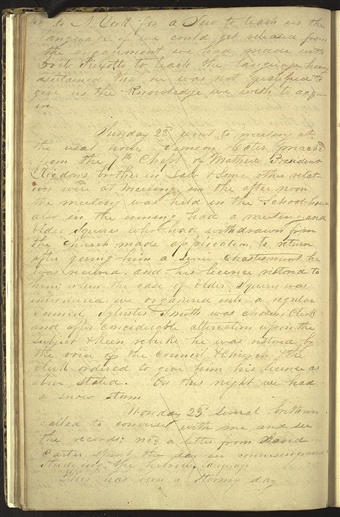 to N. York for a Jew to teach us the
language, if we could get released from
the engagement we had made with
Doct Piexotto to teach the language having
ascertained that he was not qualified to
give us the knowledge we wish to acqu
ire
Sunday 22d went to meeting at
the usual hour Simeon Carter preached
from the 7th Chapt of Mathew President
Rigdons brother in Law & Some other relat
ions were at Meeting, in the after noon
the meeting was held in the School house
also in the evening had a meeting and
elder Squires who had withdrawn from
the Church made application, to return
after giving him a severe chastisment he
was received, and his licence restored to
him, when the case of elder Squires was
introduced we organized into a regular
council, Sylvester Smith was chosen Clerk
and after considerable altercation upon the
subject & keen rebuke he was restored by
the voice of the council & Church & the
clerk ordered to give him his licence as
above stated. On this night we had
a snow storm
Monday 23d Several brethren
called to converse with me and see
the records; rec'd a letter from Jared
Carter, spent the day in conversing and
studying, the hebrew, language
This has been a stormy day